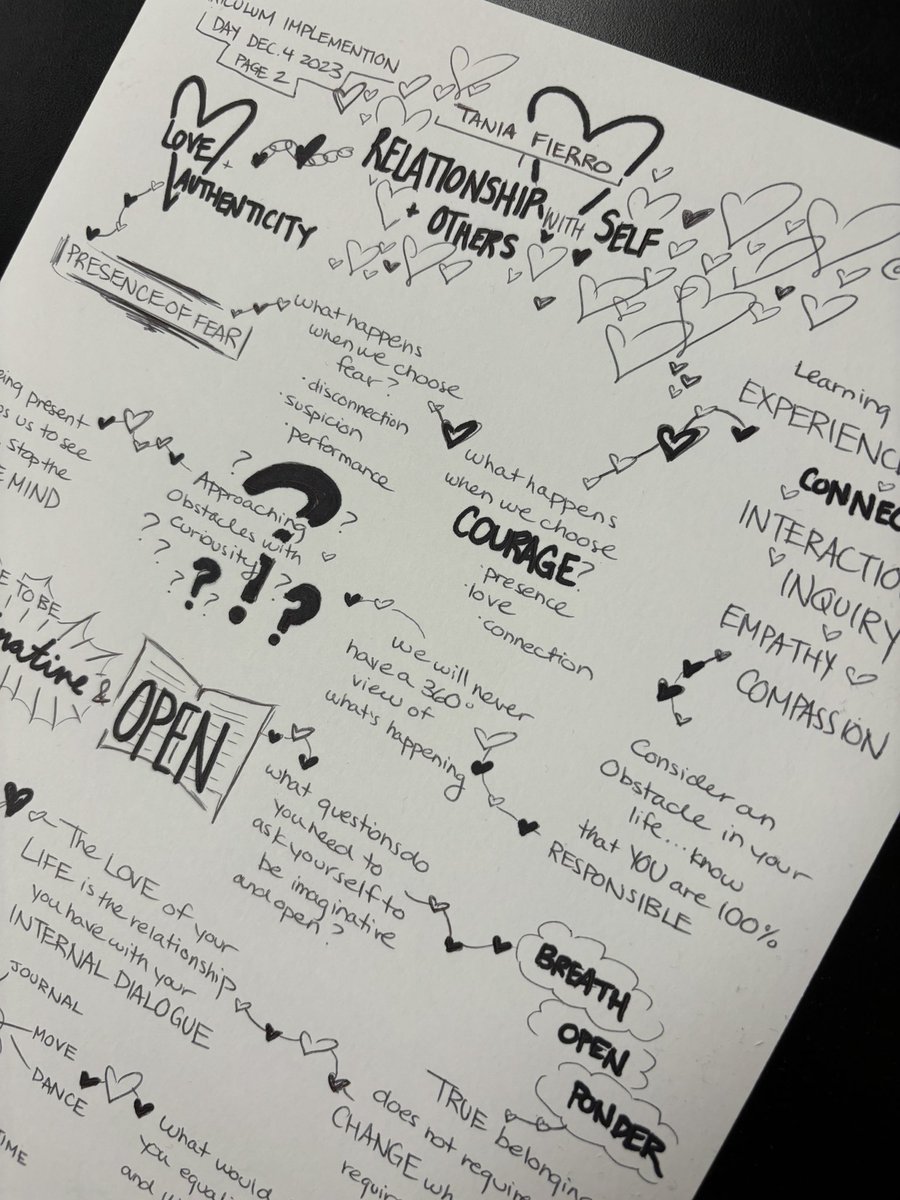 RICULUM IMPLEMENTION
DAY DEC. 4 2023
PAGE 2
TANIA FIERRO
LOVE +
AUTHENTICITY
RELATIONSHIP WITH SELF
+ OTHERS
PRESENCE OF FEAR
what happens
when we choose
fear?
· disconnection
· suspicion
· performance
Learning
EXPERIENC
CONNEC
INTERACTIO
INQUIRY
EMPATHY
COMPASSION
what happens
when we choose
COURAGE?
· presence
· love
· connection
ing present
us to see
stop the
MIND
Approaching
Obstacles with
curiousity
? ! ?
we will never
have a 360°
view of
what's happening
Consider an
Obstacle in your
life... know
that YOU are 100%
RESPONSIBLE
E TO BE
native &
OPEN
what questions do
you need to
ask yourself to
be imaginative
and open?
BREATH
OPEN
PONDER
The LOVE of your
LIFE is the relationship
you have with your
INTERNAL DIALOGUE
JOURNAL
MOVE
DANCE
TIME
TRUE belonging
does not require
CHANGE wh
requir
what would
you equali
and